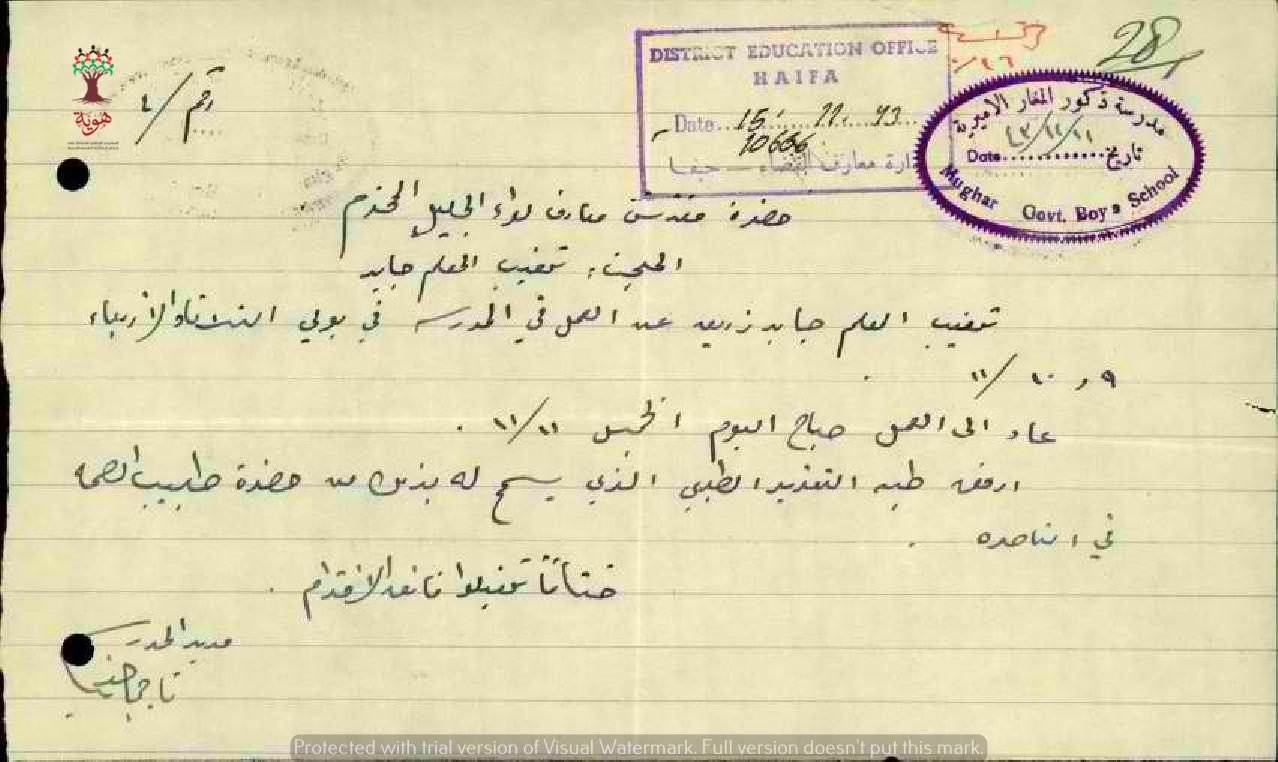 28
DISTRICT EDUCATION OFFICE
HAIFA
Date..15....11....43...
10666
ادارة معارف القضاء — حيفا
مدرسة ذكور المغار الاميرية
٤٣/١١/١١
Date............. تاريخ
Mughar Govt. Boys School
هوية
رقم / ٤
حضرة مفتش معارف لواء الجليل المحترم
المبحث: تغيب المعلم جابر
تغيب المعلم جابر عن العمل في المدرسة في يومي الثلاثاء والأربعاء
٩ و ١٠ / ١١ .
عاد الى العمل صباح اليوم الخميس ١١/١١ .
ارفق طيه التقرير الطبي الذي يسمح له بذلك من حضرة طبيب الصحة
في الناصره .
ختاماً تفضلوا فائق الاحترام .
مدير المدرسة
Protected with trial version of Visual Watermark. Full version doesn't put this mark.